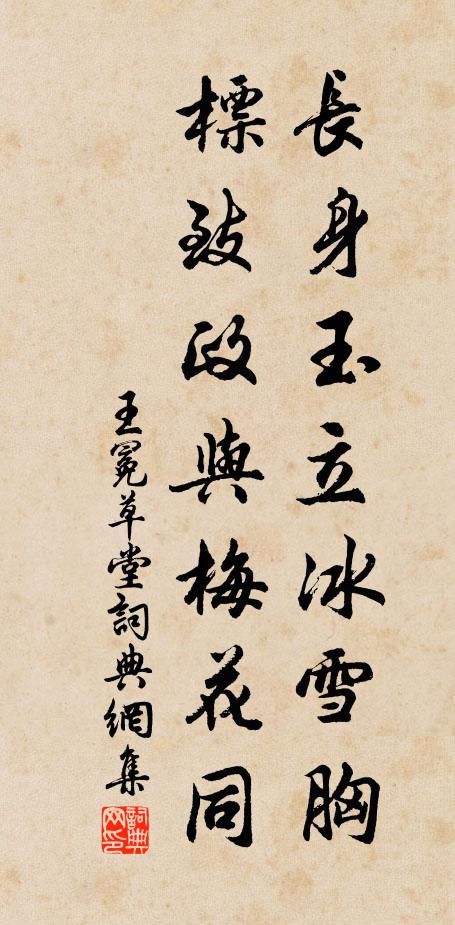 長身玉立冰雪胸
標致政與梅花同
王冕草堂詞典網集
詞典网印